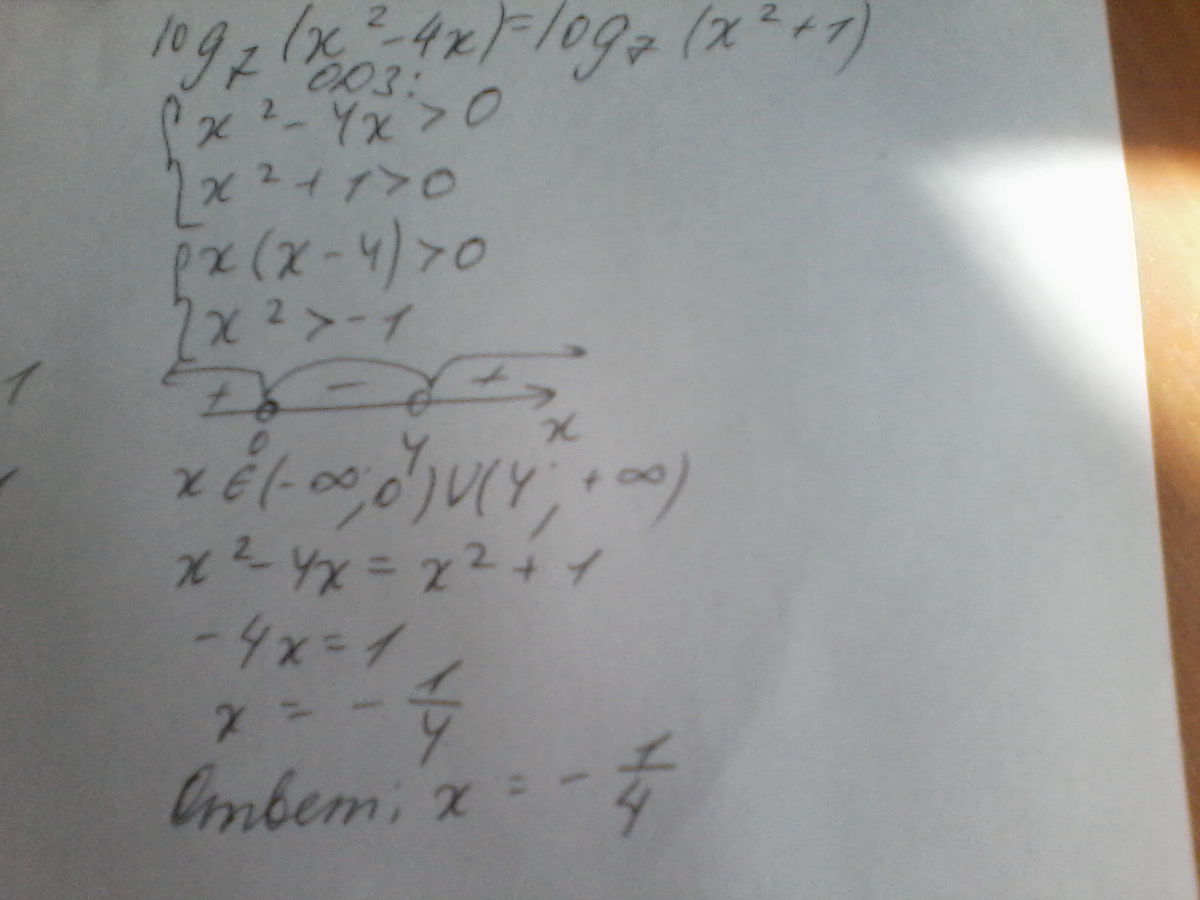 log₇(x²-4x)=log₇(x²+1)
ОДЗ:
x²-4x>0
x²+1>0
x(x-4)>0
x²>-1
1
+ - +
0 4 x
x∈(-∞;0)∪(4;+∞)
x²-4x=x²+1
-4x=1
x=-1/4
Ответ: x=-1/4